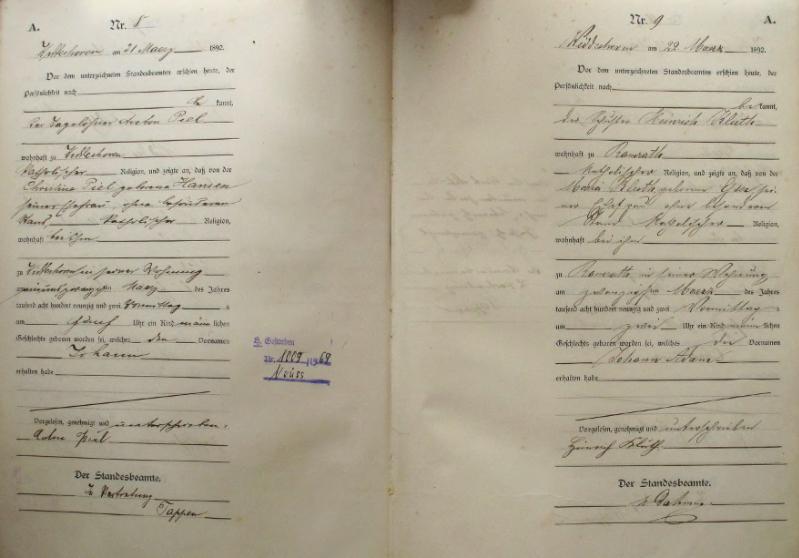 A. Nr. 8
am 21 Maerz 1892.
Vor dem unterzeichneten Standesbeamten erschien heute, der
Persönlichkeit nach
be kannt,
der Tagelöhner Anton Piel
wohnhaft zu
katholischer Religion, und zeigte an, daß von der
Christine Piel geborene Hansen
seiner Ehefrau, ohne besonderen
Stand, katholischer Religion,
wohnhaft bei ihm
zu in seiner Wohnung
am Maerz des Jahres
tausend acht hundert neunzig und zwei Vormittag s
um fünf Uhr ein Kind männ lichen
Geschlechts geboren worden sei, welches den Vornamen
Johann
erhalten habe
Vorgelesen, genehmigt und unterschrieben.
Piel
Der Standesbeamte.
In Vertretung
Tappen
Gestorben
Nr. 1009/1968
Neuss
Nr. 9 A.
am 22 Maerz 1892.
Vor dem unterzeichneten Standesbeamten erschien heute, der
Persönlichkeit nach
be kannt,
der Heinrich Kluth
wohnhaft zu Ramrath
katholischer Religion, und zeigte an, daß von der
Maria Kluth geborene
ohne besonderen
Stand katholischer Religion,
wohnhaft bei ihm
zu Ramrath in seiner Wohnung
am zwanzigsten Maerz des Jahres
tausend acht hundert neunzig und zwei Vormittag
um zwei Uhr ein Kind männ lichen
Geschlechts geboren worden sei, welches die Vornamen
Johann Adam
erhalten habe
Vorgelesen, genehmigt und unterschrieben
Heinrich Kluth
Der Standesbeamte.